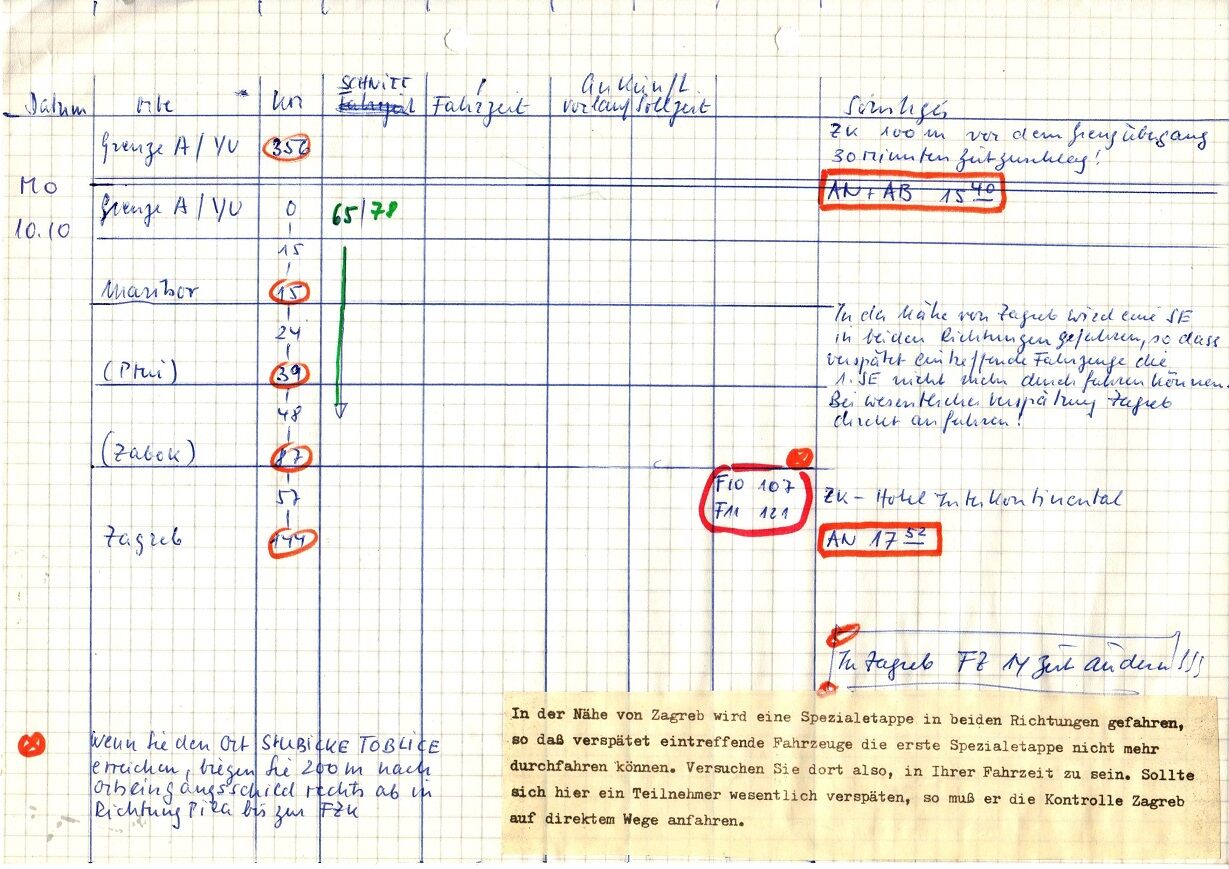 Datum Orte Km SCHNITT Fahrzeit Fahrzeit Ankunft Sonstiges
vorlauf Sollzeit
Grenze A / YU 356 ZK 100 m vor dem Grenzübergang
30 Minuten Zeitzuschlag!
MO
AN + AB 15 40
Grenze A / YU 0 65/78
10.10
15
Maribor 15
24
(Ptui) 39
48
(Zabok) 87
57
Zagreb 144
In der Nähe von Zagreb wird eine SE
in beiden Richtungen gefahren, so dass
verspätet eintreffende Fahrzeuge die
1. SE nicht mehr durchfahren können.
Bei wesentlicher Verspätung Zagreb
direkt anfahren!
F10 107
F11 121
ZK - Hotel Interkontinental
AN 17 52
In Zagreb FZ 14 Zeit ändern !!!
Wenn Sie den Ort STUBICKE TOBLICE
erreichen, biegen Sie 200 m nach
Ortseingangsschild rechts ab in
Richtung Pila bis zur FZK
In der Nähe von Zagreb wird eine Spezialetappe in beiden Richtungen gefahren,
so daß verspätet eintreffende Fahrzeuge die erste Spezialetappe nicht mehr
durchfahren können. Versuchen Sie dort also, in Ihrer Fahrzeit zu sein. Sollte
sich hier ein Teilnehmer wesentlich verspäten, so muß er die Kontrolle Zagreb
auf direktem Wege anfahren.